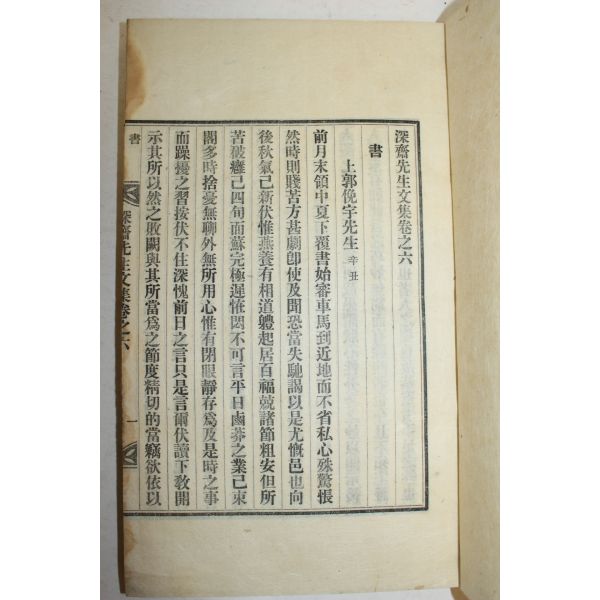 深齋先生文集卷之六
書
上郭俛宇先生 辛丑
前月末領中夏下覆書始審車馬到近地而不省私心殊驚悵
然時則賤苦方甚劇卽使及聞恐當失馳謁以是尤慨邑也向
後秋氣已新伏惟燕養有相道軆起居百福兢諸節粗安但所
苦破瘧已四旬而蘇完極遲恠悶不可言平日鹵莽之業已束
閣多時捨憂無聊外無所用心惟有閉眼靜存爲及是時之事
而躁擾之習按伏不住深愧前日之言只是言爾伏讀下敎開
示其所以然之敗闕與其所當爲之節度精切的當竊欲依以
書
深齋先生文集卷之六
一